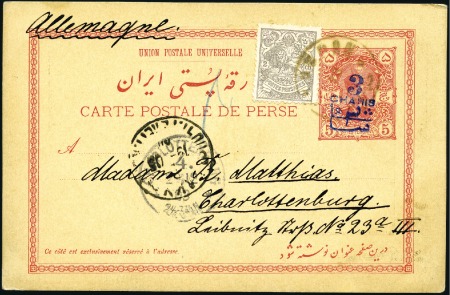 Allemagne.
UNION POSTALE UNIVERSELLE
رقعه پستی ایران
CARTE POSTALE DE PERSE
3
CHAHIS
5
5
A
Madame
Matthias,
Charlottenburg.
Leibnitz Str. No 23a III.
Ce côté est exclusivement réservé à l'adresse.
درین صفحه عنوان نوشته شود